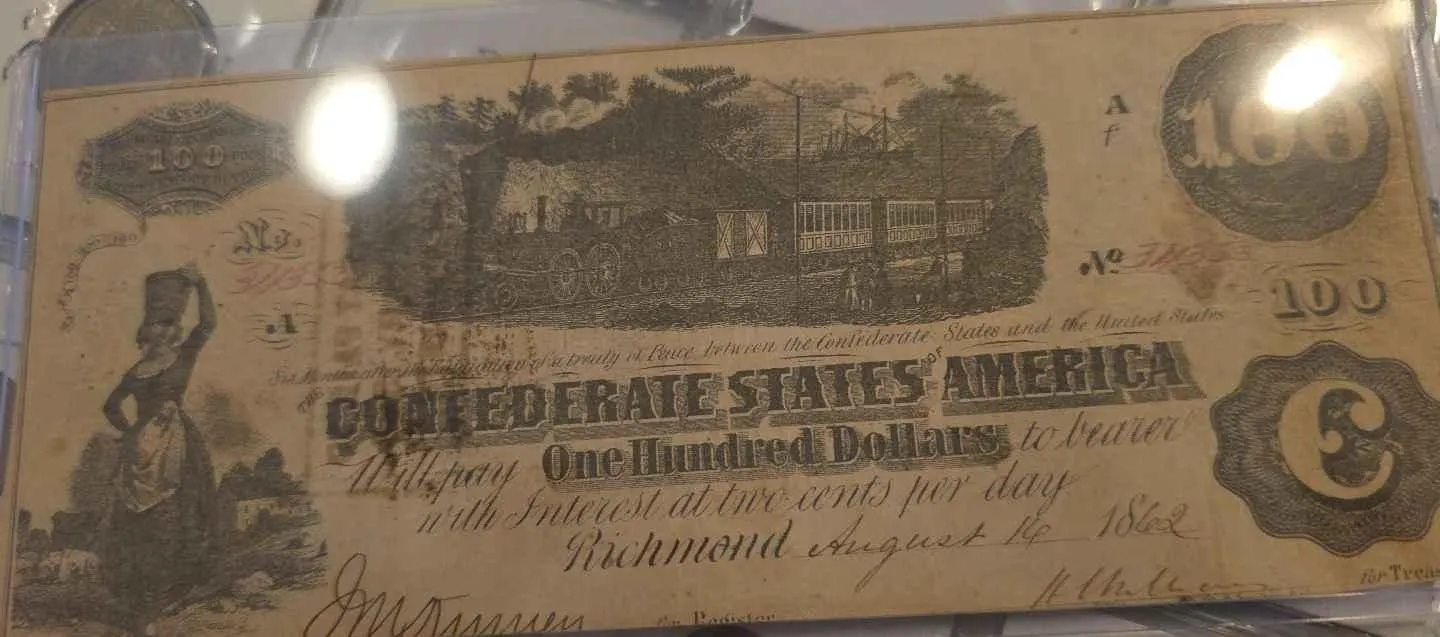 100
100
A
f
No.
Nº
100
A
Six Months after the Ratification of a treaty of Peace between the Confederate States and the United States
THE CONFEDERATE STATES OF AMERICA
Will pay One Hundred Dollars to bearer
with Interest at two cents per day
C
Richmond August 16 1862
for Register
for Treas